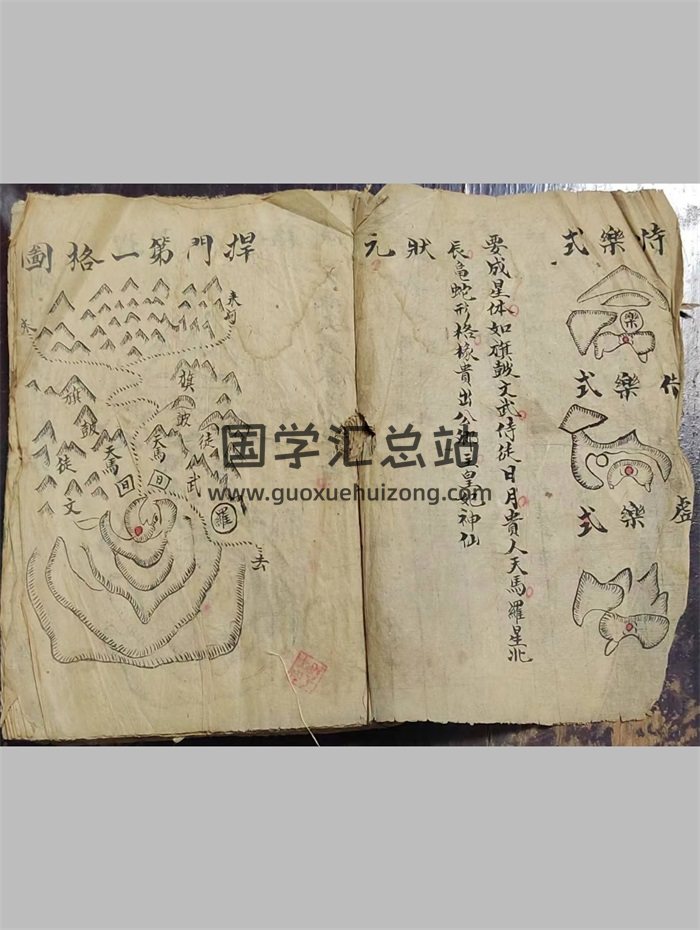 恃樂式
樂
樂式
虛樂式
要成星体如旗皷文武侍徒日月貴人天馬羅星北
辰龜蛇形格椽貴出公主皇妃神仙
狀元
捍門第一格圖
来
来
旗
皷
徒
武
天馬
旗
皷
徒
文
天馬
回
回
羅
去
国学汇总站
www.guoxuehuizong.com